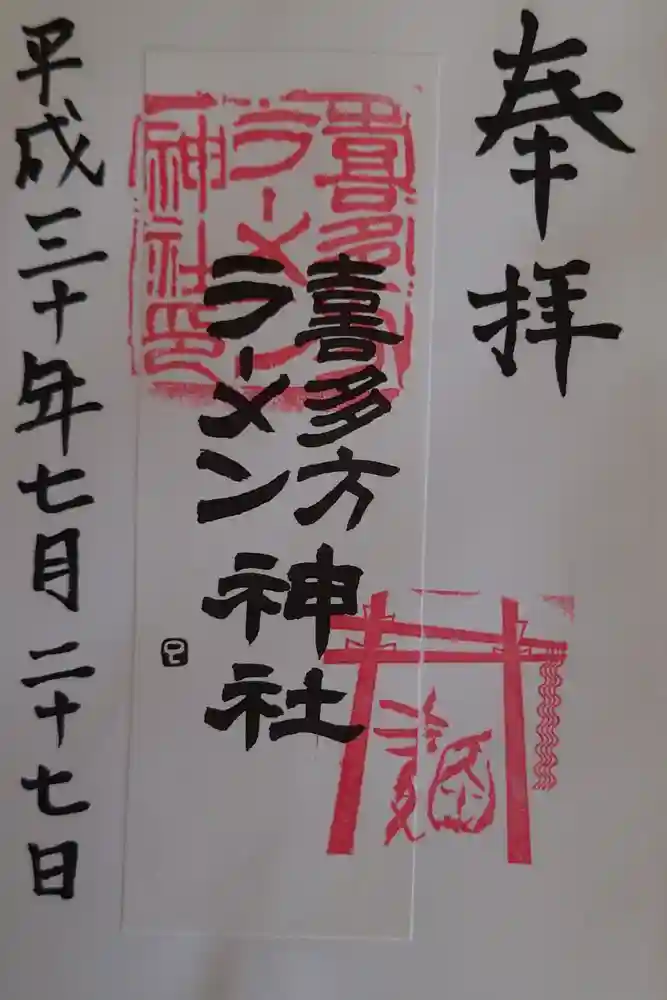 奉拝
喜多方
ラーメン
神社
喜多方
ラーメン
神社印
平成三十年七月二十七日